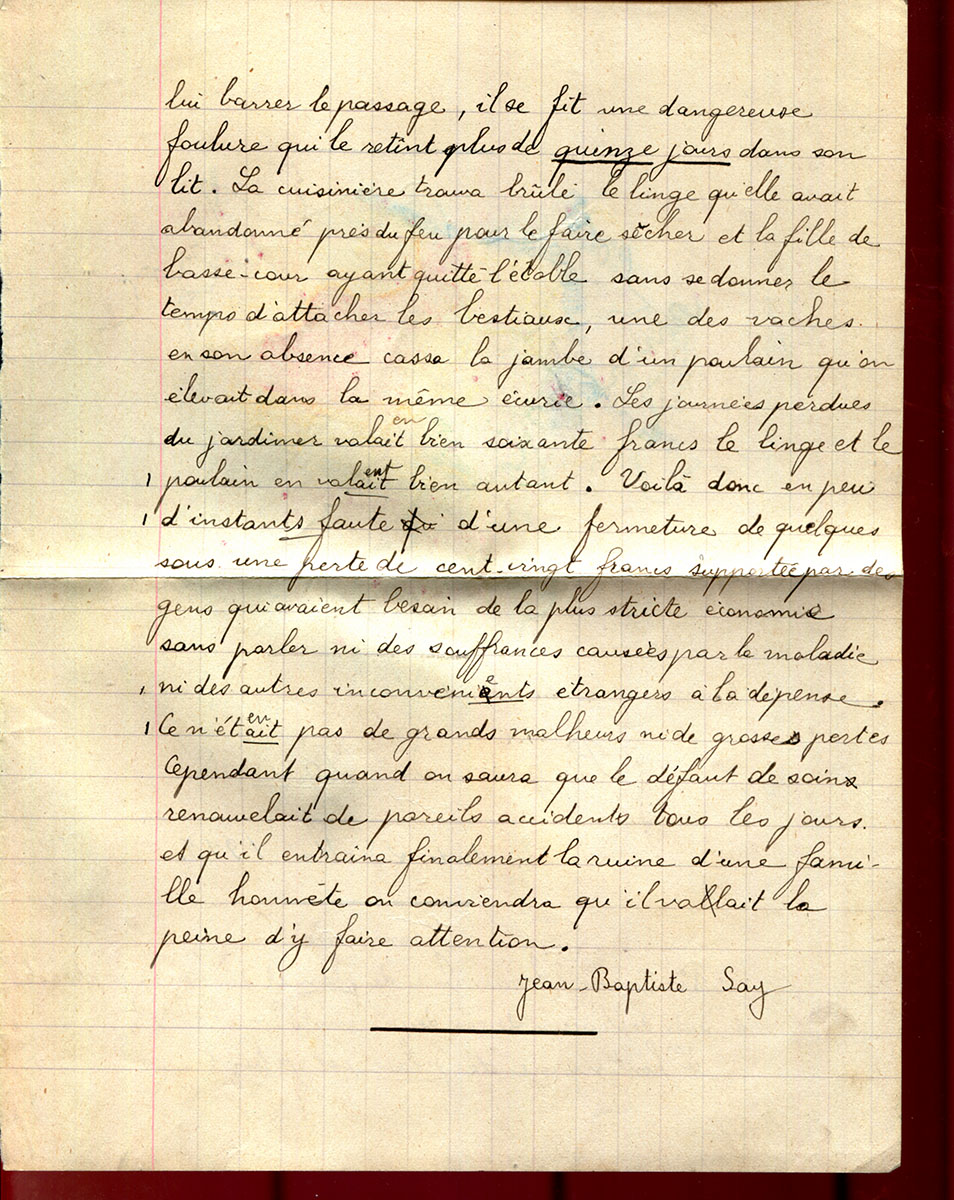 lui barrer le passage, il se fit une dangereuse
foulure qui le retint plus de quinze jours dans son
lit. La cuisinière trouva brûlé le linge qu'elle avait
abandonné près du feu pour le faire sècher et la fille de
basse-cour ayant quitté l'étable sans se donner le
temps d'attacher les bestiaux, une des vaches.
en son absence cassa la jambe d'un poulain qu'on
élevait dans la même écurie. Les journées perdues
en
du jardinier valait bien soixante francs le linge et le
ent
1 poulain en valait bien autant. Voilà donc en peu
1 d'instants faute d'une fermeture de quelques
sous une perte de cent-vingt francs supportée par des
gens qui avaient besoin de la plus stricte économie
sans parler ni des souffrances causées par la maladie
1 ni des autres inconvénients étrangers à la dépense.
en
1 Ce n'était pas de grands malheurs ni de grosses pertes
Cependant quand on saura que le défaut de soins
renouvelait de pareils accidents tous les jours.
et qu'il entraina finalement la ruine d'une fami-
lle honnête on conviendra qu'il vallait la
peine d'y faire attention.
Jean-Baptiste Say